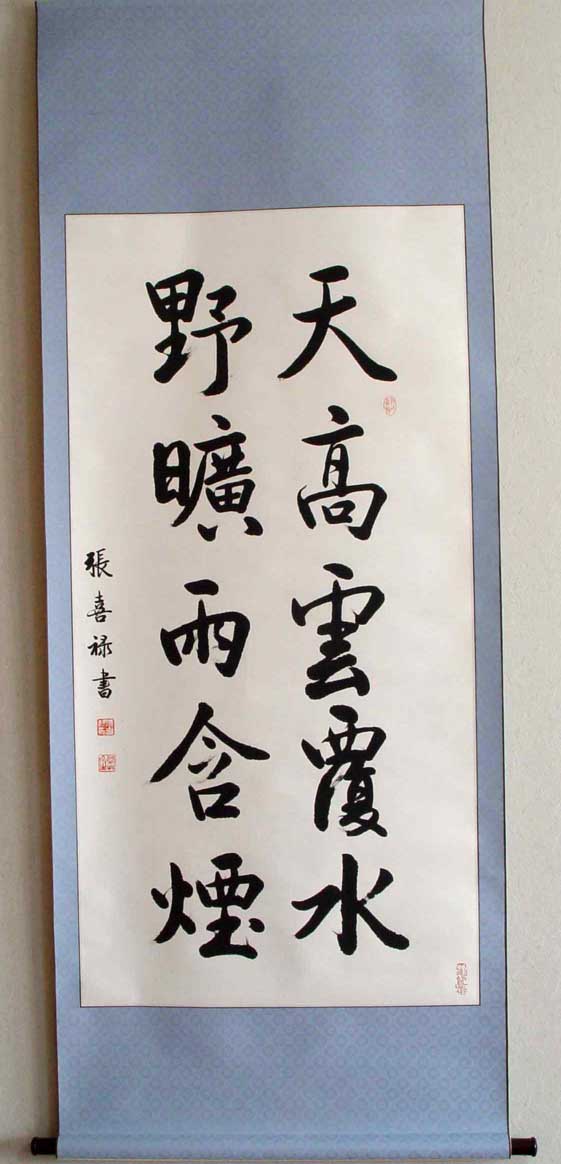 天高雲覆水
野曠雨含煙
張喜禄書